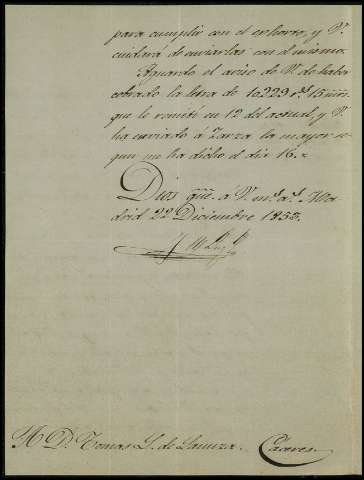 para cumplir con el exhorto, y V.
cuidará de enviarlas con el mismo.
Aguardo el aviso de V. de haber
cobrado la letra de 10229 rs. 15 mrs.
que le remití en 12 del actual, y V.
ha enviado á Zarza la mayor se
gun me ha dicho el dia 16.
Dios gue. a V. ms. as. Ma
drid 22 Diciembre 1853.
S. D. Tomas L. de Cáceres.